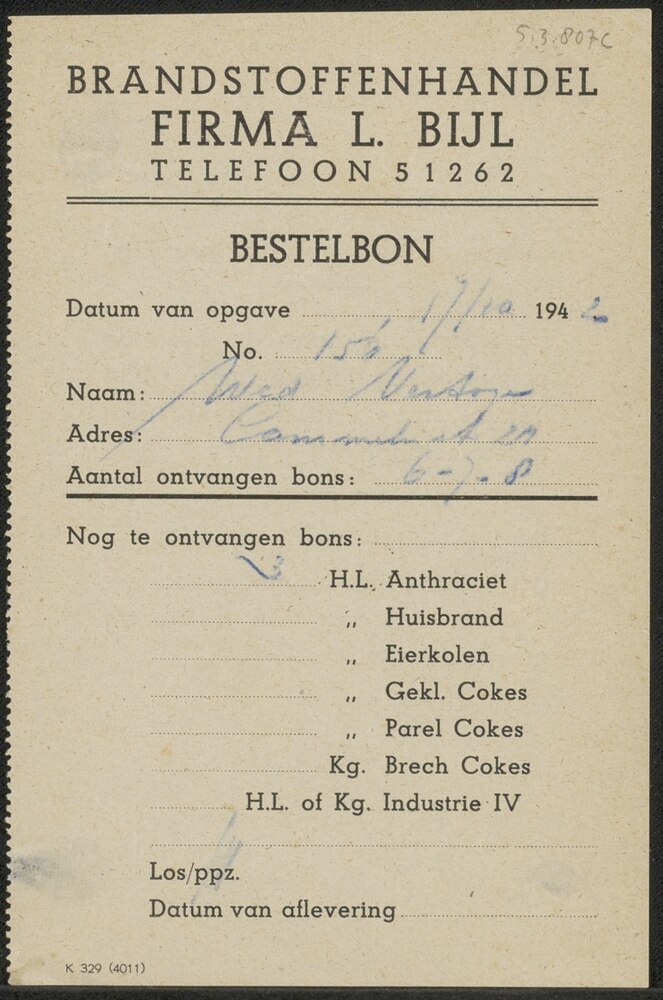 5.3.807C
BRANDSTOFFENHANDEL
FIRMA L. BIJL
TELEFOON 51262
BESTELBON
Datum van opgave 17/10 1942
No. 156
Naam: Wed
Adres: 20
Aantal ontvangen bons: 6-7-8
Nog te ontvangen bons:
3 H.L. Anthraciet
„ Huisbrand
„ Eierkolen
„ Gekl. Cokes
„ Parel Cokes
Kg. Brech Cokes
H.L. of Kg. Industrie IV
Los/ppz.
Datum van aflevering
K 329 (4011)